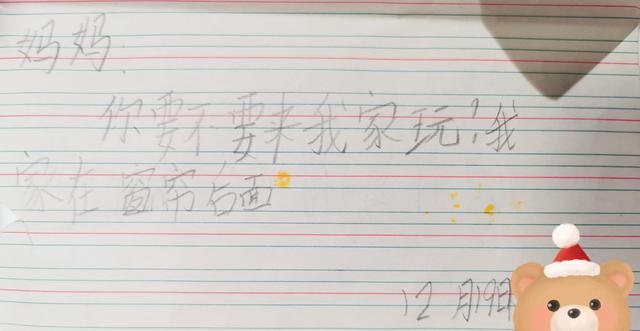 妈妈:
你要不要来我家玩?我
家在窗帘后面
12月19日